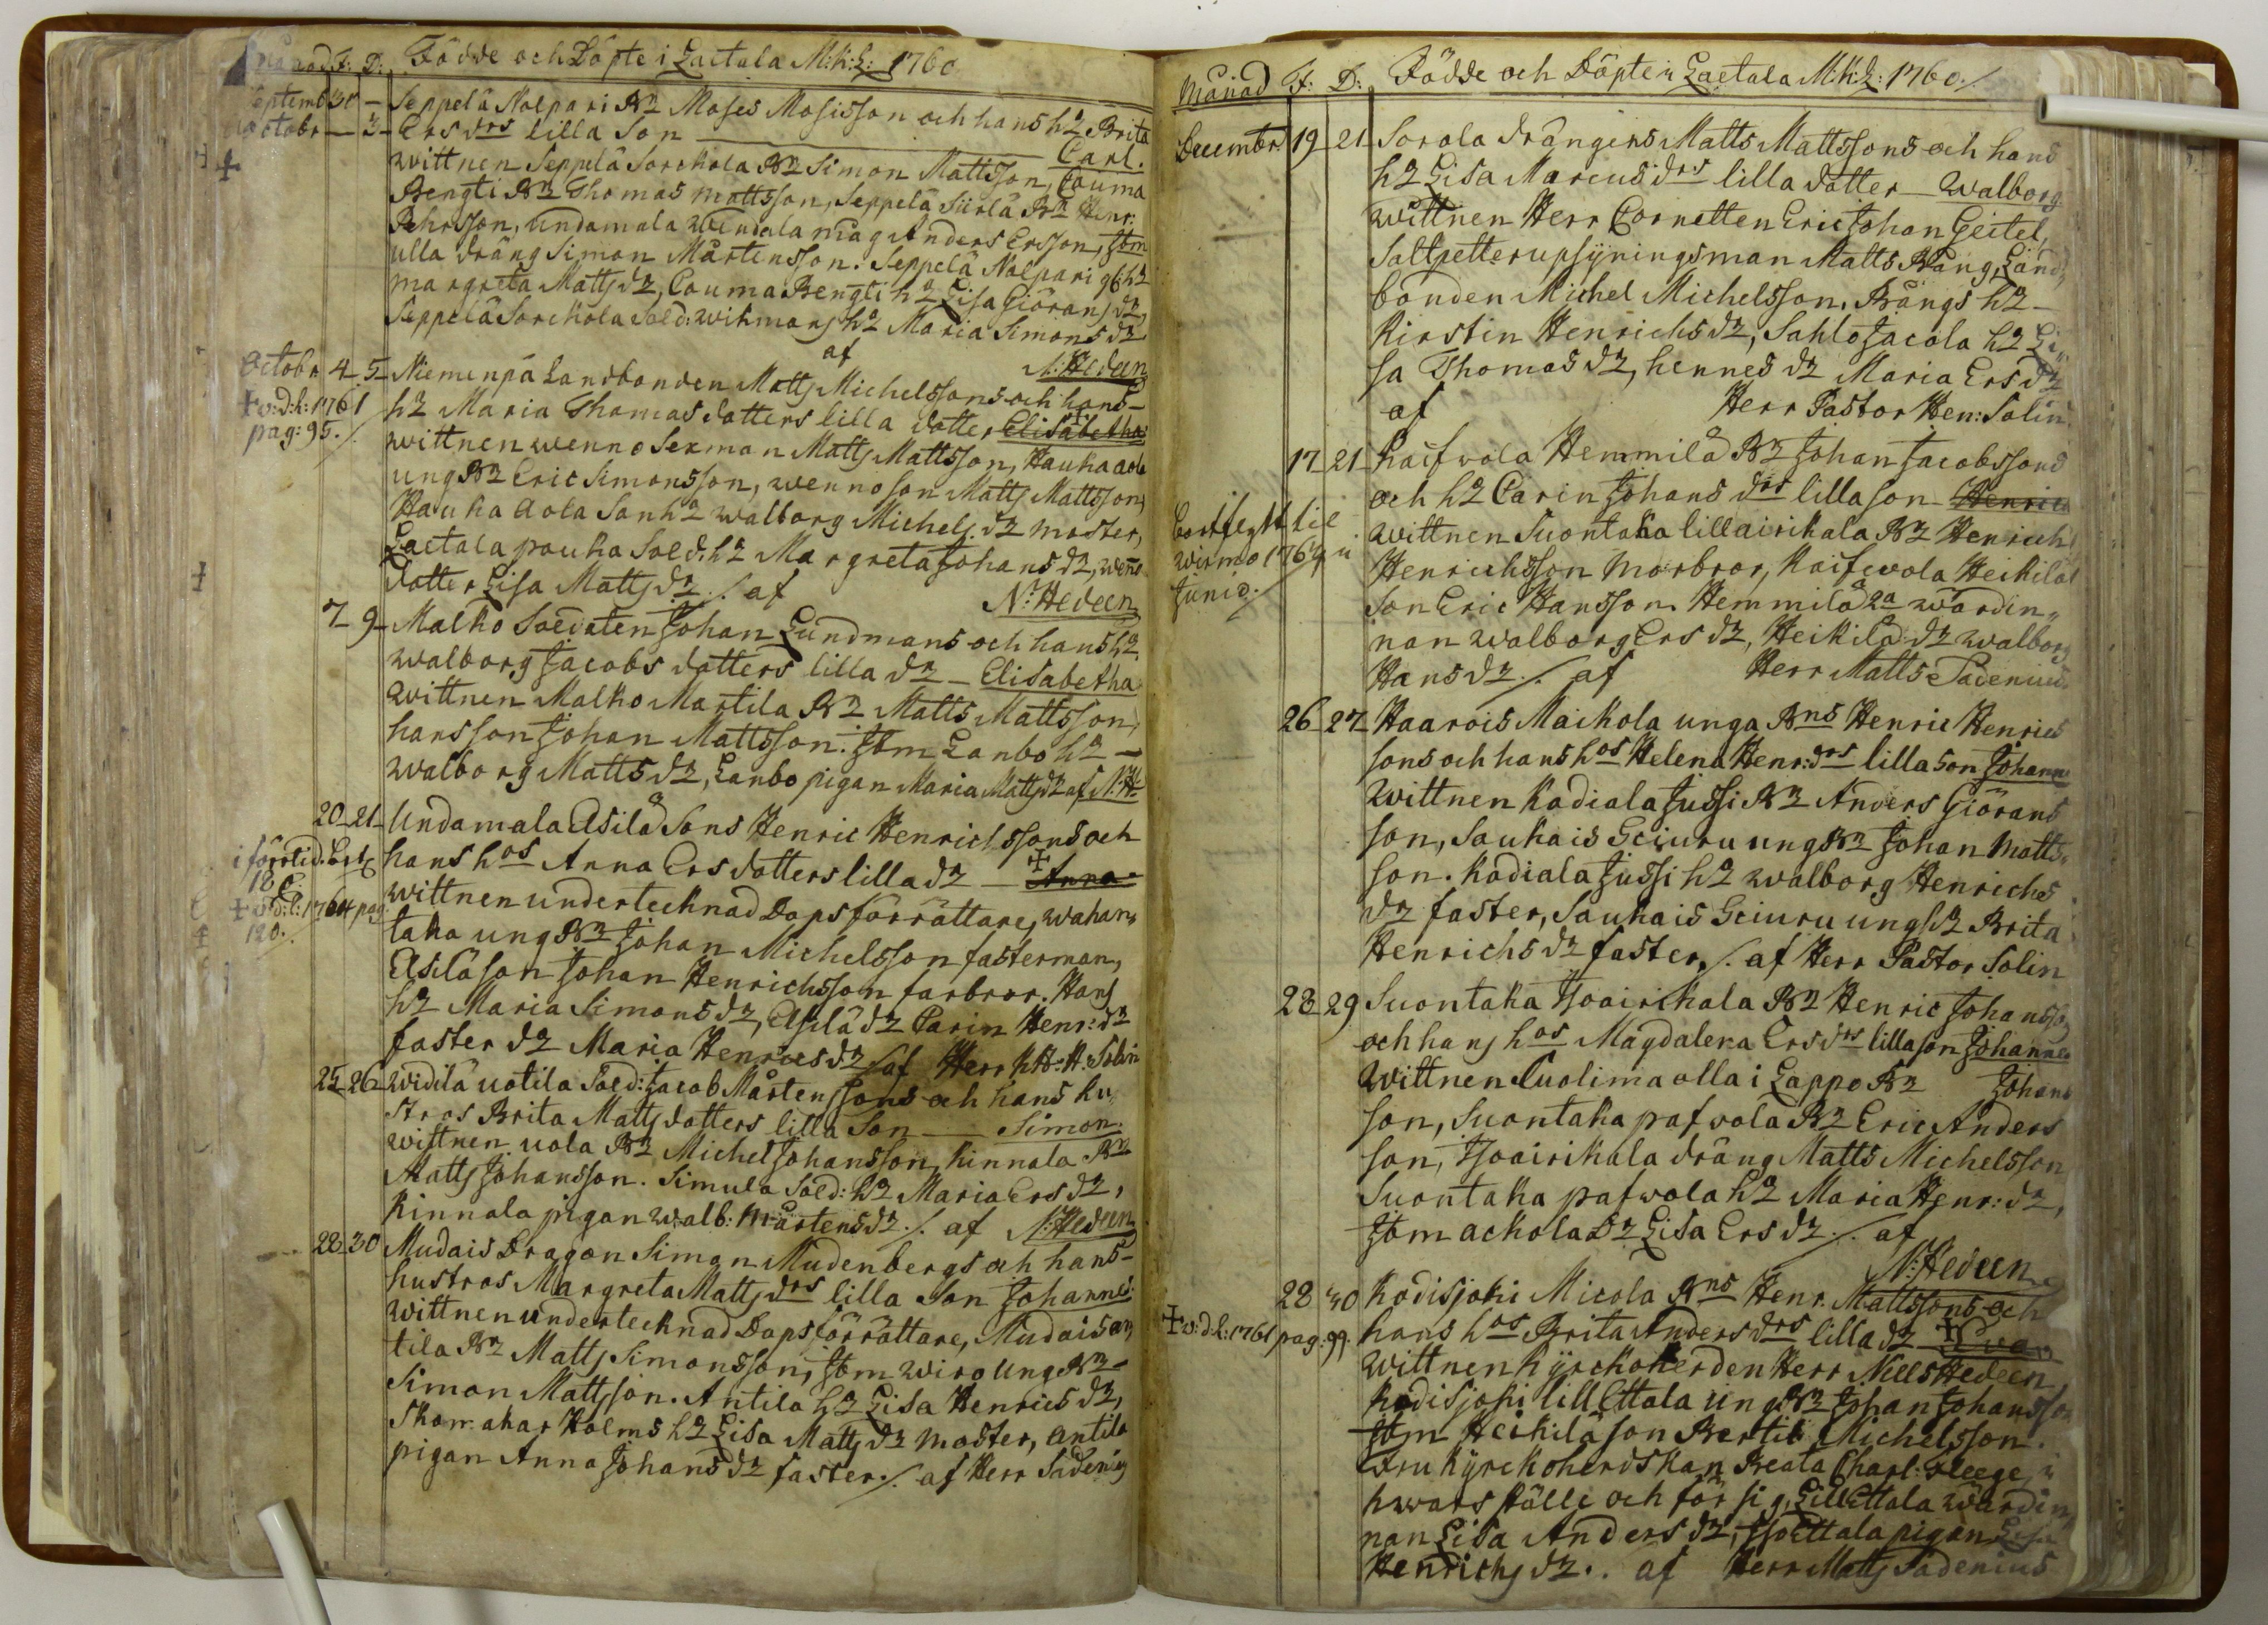 Månad F: D: Födde och Döpte i Laetala M:K:L: 1760
Septemb 30 – Seppelä Nalpari Bn Moses Mosisson och hans h2 Brita
Octobr – 3 – Ers drs lilla Son — Carl.
wittnen Seppelä Sorckola Bn Simon Mattsson, Cauma
Bengti Bn Thomas Mattsson, Seppelä Siirlä Bn Henr:
Pehrsson, undamala måg Anders Ersson, Jbm
ulla dräng Simon Mårtensson. Seppelä Nalpari g6h2
Margreta Matts dr, Cauma Bengti ha Lisa Giörans dr,
Seppelä Sorckola Sold: wikmans ha Maria Simons dr
af N: Hedeen
Octobr 4 5 Niemenpä Landbonden Matts Michelssons och hans
✝ v:d:l: 1761 h2 Maria Thomas dotters lilla dotter Elisabetha
pag: 95. wittnen wenno Sexman Matts Mattsson, Hauka aola
ung Bn Eric Simonsson, wenno son Matts Mattsson,
Hauka Aola Sonha walborg Michels dr moster,
Laetala pouka Sold. ha Margreta Johans dr, weno
dotter Lisa Matts dr ./. af N: Hedeen
7 9 Malko Soldaten Johan Lundmans och hans h2
walborg Jacobs dotters lilla dr – Elisabetha
wittnen Malko Martila Bn Matts Mattsson,
hans son Johan Mattsson. Jbm Lanbo ha –
walborg Matts dr, Lanbo pigan Maria Matts dr af N: H
20 21 Undamala Asilå Sons Henric Henrichssons och
hans hos Anna Ers dotters lilla dr – ✝ Anna
wittnen undertecknad Dops förrättare, wahan„
✝ v:d:l: 1764 pag taka ung Bn Johan Michelsson fasterman,
120. Asilå son Johan Henrichsson farbror. Hans
h2 Maria Simons dr, Asilå dr Carin Henr: dr
faster dr Maria Henrics dr /. af Herr H: Solin
25 26 widilä uotila Sold: Jacob Mårtenssons och hans hu„
stros Brita Matts dotters lilla Son — Simon.
wittnen uola Bn Michel Johansson, kinnala Bn
Matts Johansson. Simula Sold: h2 Maria Ers dr,
kinnala pigan walb: Mårtens dr. /. af N: Hedeen
28 30 Mudais Dragon Simon Mudenbergs och hans
hustros Margreta Matts drs lilla Son Johannes
wittnen undertecknad Dops förrättare, Mudais an„
tila Bn Matts Simonsson, Jbm wiro ung Bn
Simon Mattsson. Antila h2 Lisa Henrics dr,
Skomakar Holms h2 Lisa Matts dr Moster, antila
pigan Anna Johans dr faster. /. af Herr Sadenius
Månad F: D: Födde och Döpte i Laetala M:K:L: 1760./
December 19 21 Sorola drängens Matts Mattssons och hans
h2 Lisa Marcus drs lilla dotter – Walborg
wittnen Herr Cornetten Eric Johan Geitel,
Saltpetterupsyningsman Matts Prang, Land„
bonden Michel Michelsson. Prångs h2 –
kirstin Henrichs dr, Sahlo Jacola h2 Li„
sa Thomas dr, hennes dr Maria Ers dr
af Herr Pastor Hen: Solin
17 21 kaifvola Hemmilä Bn Johan Jacobssons
och h2 Carin Johans drs lilla son Henric
bortflytt til wittnen Suontaka lillairikala Bn Henrich
wirmo Henrichsson Morbror, kaifwola Heikilä
Junii /. Son Eric Hansson. Hemmilä 2a wärdin„
nan walborg Ers dr, Heikilä dr walborg
Hans dr /. af Herr Matts Sadenius
26 27 Haarois Maikola unga Bns Henric Henrics
sons och hans hos Helena Henr: drs lilla Son Johannes
wittnen kodiala Jussi Bn Anders Giörans
son, Saukais Geiuru ung Bn Johan Matts„
son. kodiala Jussi h2 walborg Henrichs
dr faster, Saukais Geiuru ungh2 Brita
Henrichs dr faster, /. af Herr Pastor Solin
28 29 Suontaka Isoairikala Bn Henric Johansson
och hans hos Magdalena Ers drs lilla son Johannes
wittnen Cuolima olla i Lappo Bn Johans
son, Suontaka pafvola Bn Eric Anders
son, Isoairikala dräng Matts Michelsson
Suontaka pafwola h2 Maria Henr: dr,
Jbm ackola dr Lisa Ers dr ./. af
N: Hedeen
28 30 kodisjoki Micola Bns Henr. Mattssons och
✝ v:d:l: 1761 pag: 99. hans hos Brita Anders drs lilla dr ✝ Eva
wittnen kyrckoherden Herr Nills Hedeen
kodisjoki lill Ettala ung Bn Johan Johansson
Jbm Heikilä son Bertil Michelsson.
Fru kyrckoherdskan Beata Charl: Fleege, i
hwars ställe och för sig, Lill Ettala wärdin„
nan Lisa Anders dr, Iso Ettala pigan Lisa
Henrichs dr. . af Herr Matts Sadenius